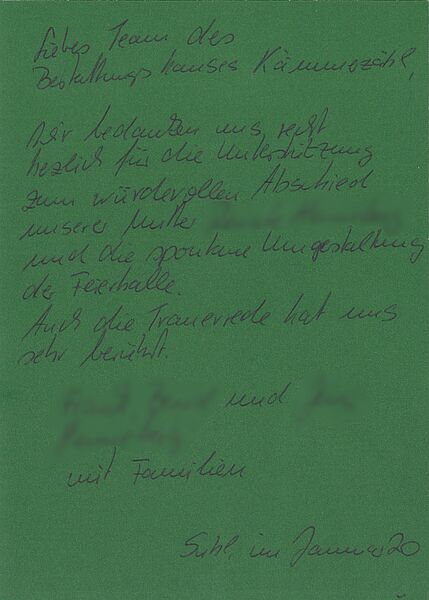 Liebes Team des
Bestattungshauses Kämmerzähl,
Wir bedanken uns recht
herzlich für die Unterstützung
zum würdevollen Abschied
unserer Mutter
und die spontane Umgestaltung
der Feierhalle.
Auch die Trauerrede hat uns
sehr berührt.
und
mit Familien
Suhl, im Januar 20